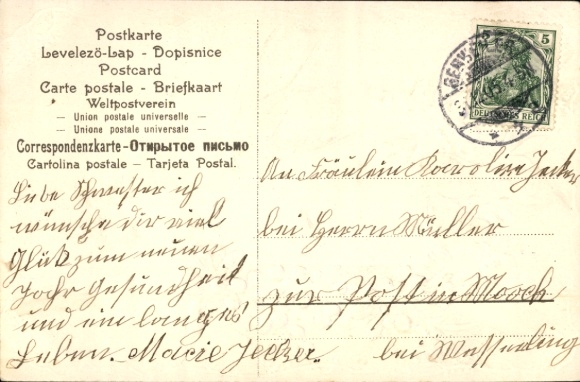 Postkarte
Levelezö-Lap - Dopisnice
Postcard
Carte postale - Briefkaart
Weltpostverein
- Union postale universelle -
- Unione postale universale -
Correspondenzkarte-Открытое письмо
Cartolina postale - Tarjeta Postal.
5
DEUTSCHES REICH
Liebe Schwester ich
wünsche dir viel
Glück zum neuen
Jahr Gesundheit
und ein langes
Leben. Marie Jecker.
An Fräulein Karoline Jecker
bei Herrn Müller
zur Post in Moosch
bei Wesserling